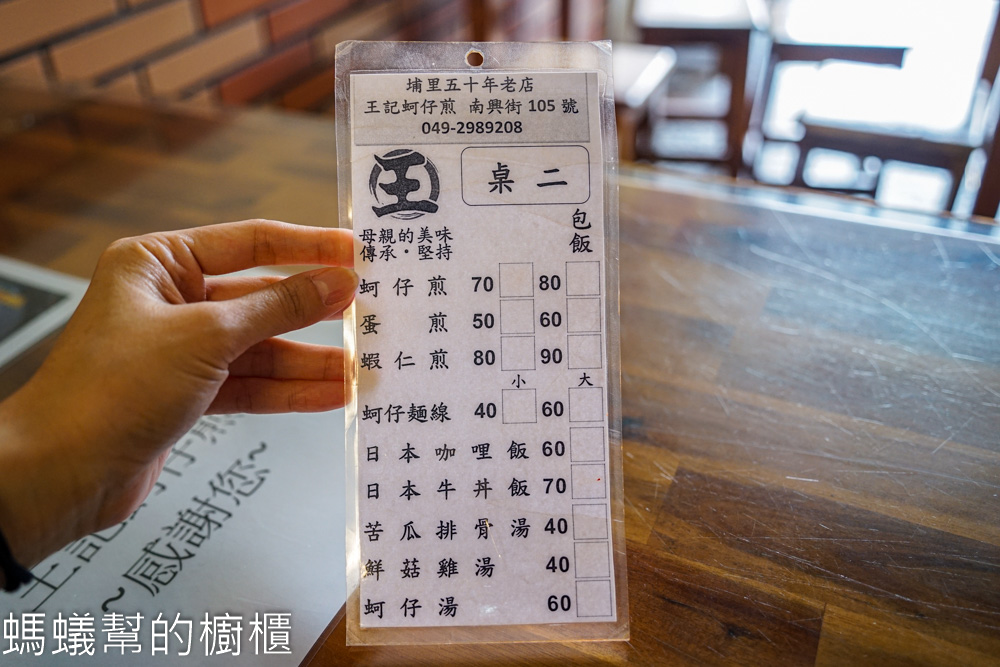 埔里五十年老店
王記蚵仔煎 南興街 105 號
049-2989208
王
桌 二
包飯
母親的美味
傳承·堅持
蚵仔煎 70 80
蛋煎 50 60
蝦仁煎 80 90
小 大
蚵仔麵線 40 60
日本咖哩飯 60
日本牛丼飯 70
苦瓜排骨湯 40
鮮菇雞湯 40
蚵仔湯 60
王記蚵仔煎
~感謝您~
螞蟻幫的櫥櫃